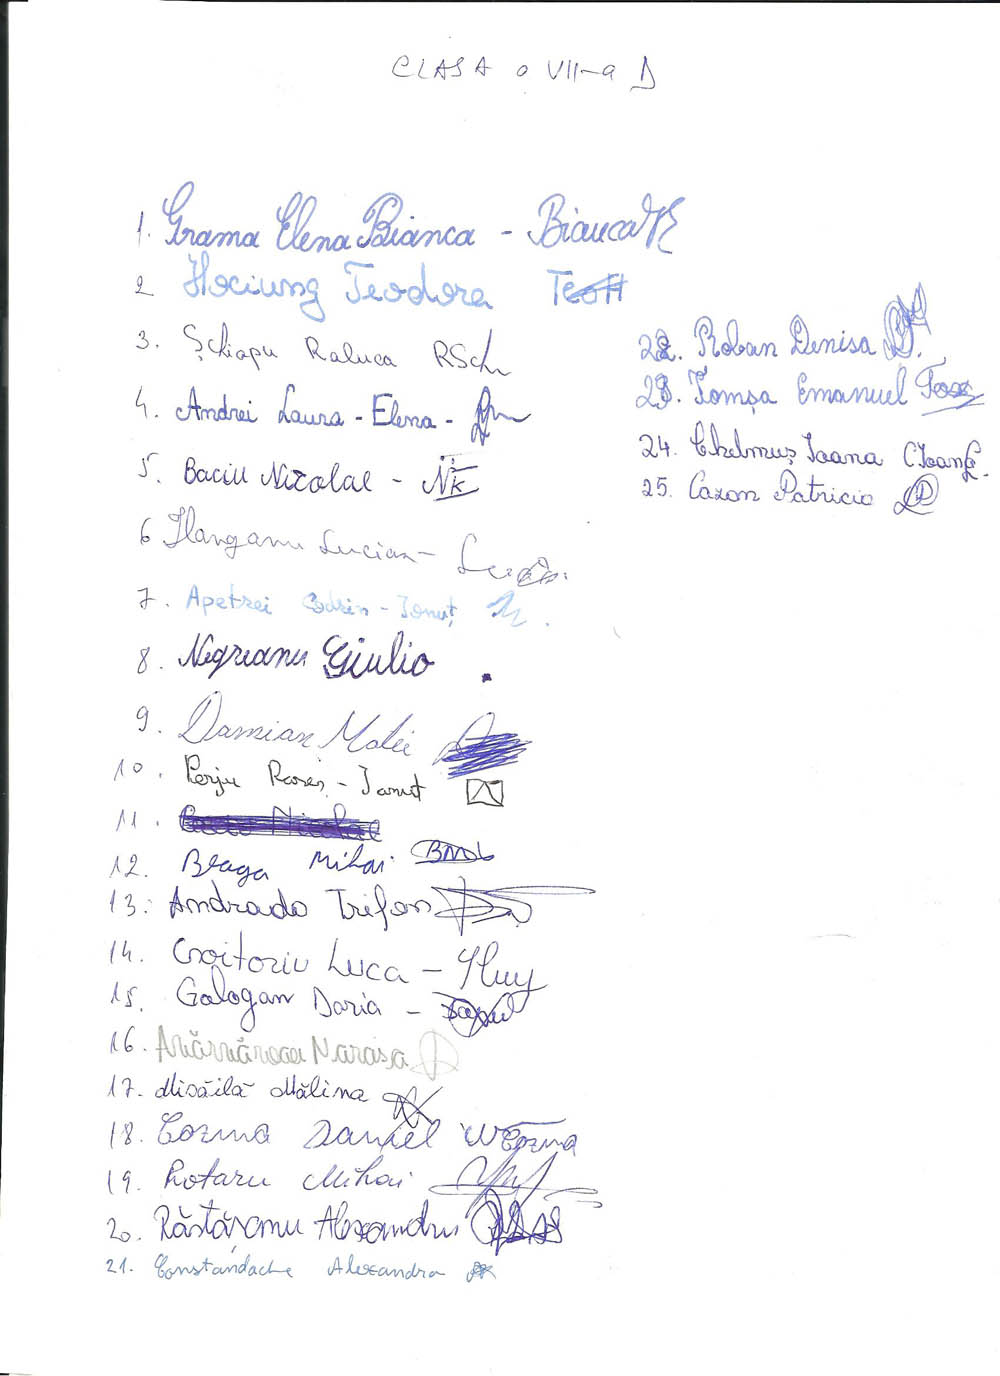 CLASA a VII-a D
1. Grama Elena Bianca - Bianca
2 Hociung Teodora TeoH
3. Șchiopu Raluca RSch
4. Andrei Laura-Elena -
5. Baciu Nicolae -
6 Ilanganu Lucian -
7. Apetrei Codrin-Ionuț
8. Negreanu Giulio
9. Damian Matei
10. Perju Rareș-Ionuț
11.
12. Braga Mihai
13. Andrada Trifan
14. Croitoriu Luca -
15. Gologan Daria -
16.
17. Misăilă Mălina
18. Cozma Daniel Cozma
19. Rotaru Mihai
20. Răstășanu Alexandru
21. Constandache Alexandra
22. Roban Denisa
23. Tomșa Emanuel
24. Chelmuș Ioana
25. Cazan Patricia